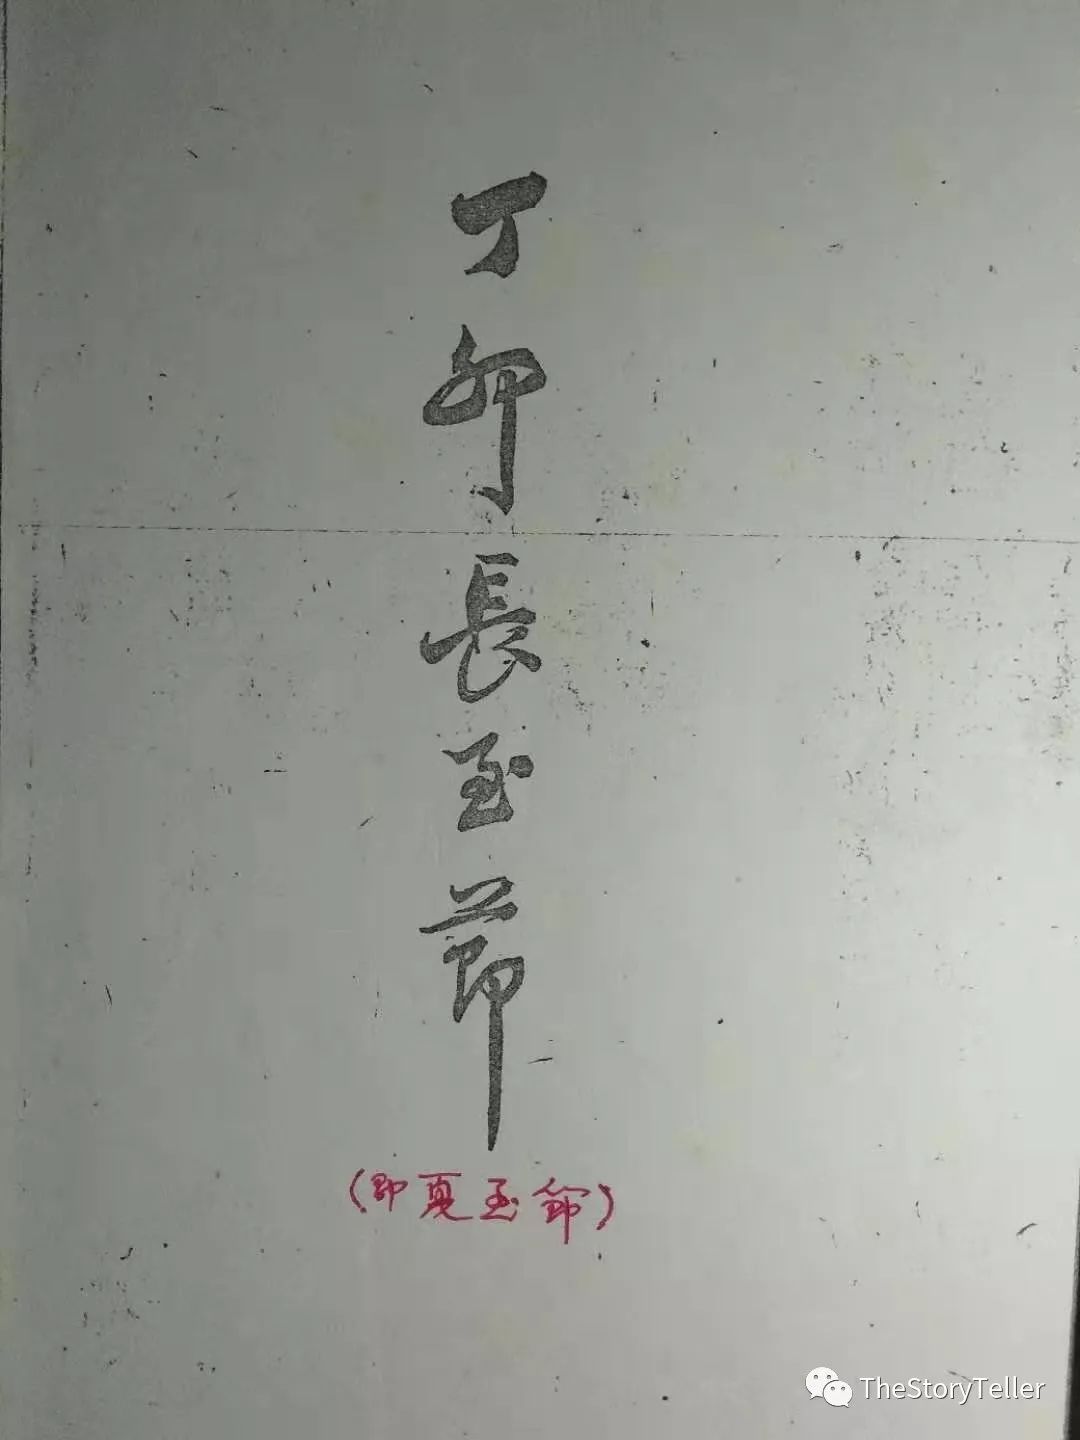 丁卯長至節
(即夏至節)
TheStoryTeller